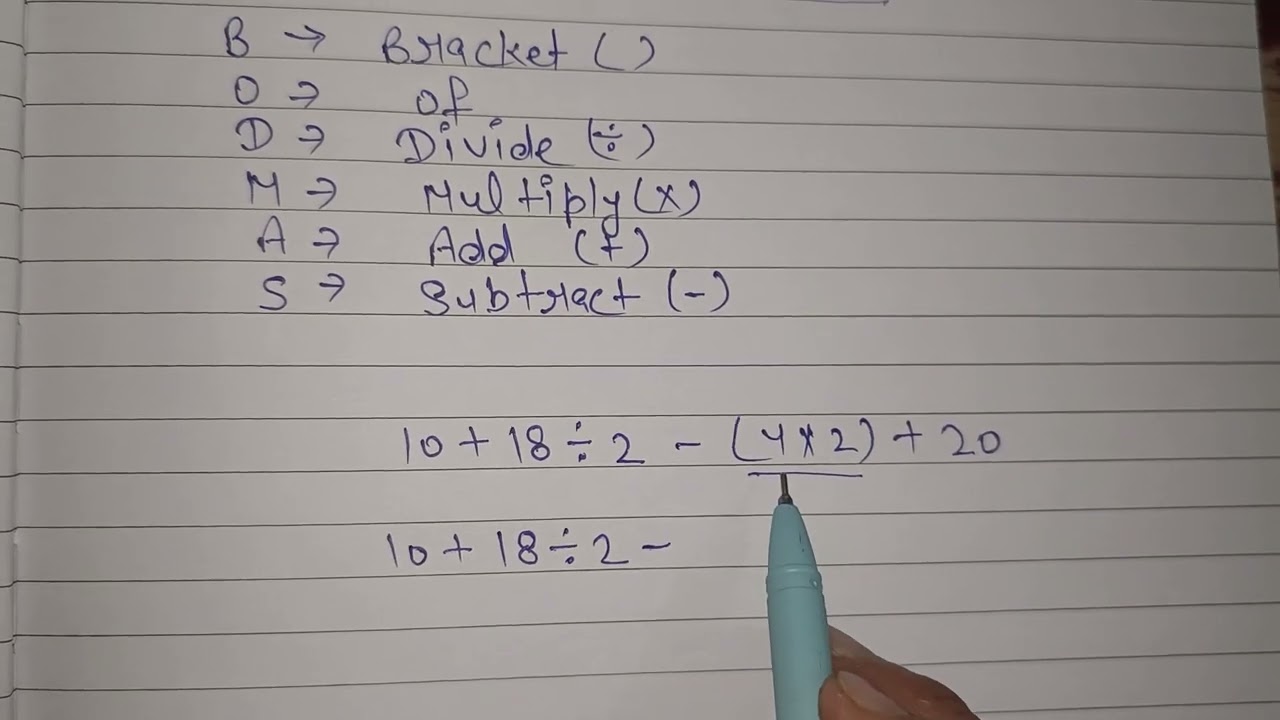 B → Bracket ()
O → Of
D → Divide (÷)
M → Multiply (x)
A → Add (+)
S → Subtract (-)
10 + 18 ÷ 2 - (4 × 2) + 20
10 + 18 ÷ 2 -